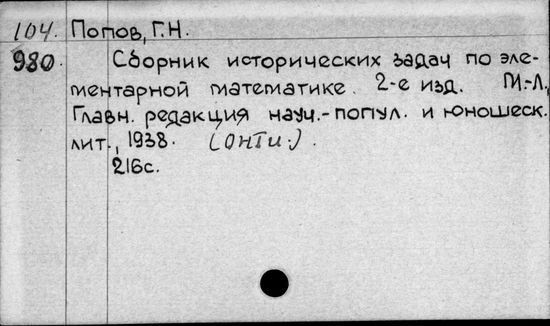 104. Попов, Г.Н.
980. Сборник исторических задач по эле-
ментарной математике. 2-е изд. М.-Л.,
Главн. редакция науч.-попул. и юношеск.
лит., 1938. (ОНТИ.).
216с.